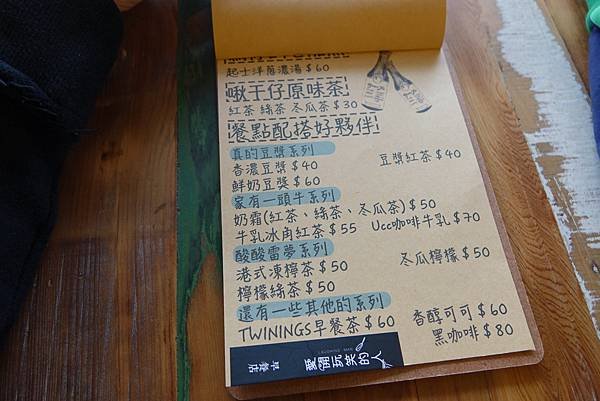 起士洋蔥濃湯$60
啾干仔原味茶
紅茶 綠茶 冬瓜茶$30
餐點配搭好夥伴
真的豆漿系列
香濃豆漿$40 豆漿紅茶$40
鮮奶豆漿$60
家有一頭牛系列
奶霜(紅茶、綠茶、冬瓜茶)$50
牛乳冰角紅茶$55 Ucc咖啡牛乳$70
酸酸雷夢系列
港式凍檸茶$50 冬瓜檸檬$50
檸檬綠茶$50
還有一些其他的系列
TWININGS早餐茶$60 香醇可可$60
黑咖啡$80
愛開玩笑的人
早餐店